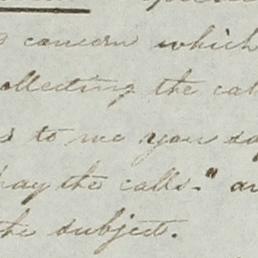 concern which
ollecting the cal
s to me you sa
pay the calls." a
the subject.